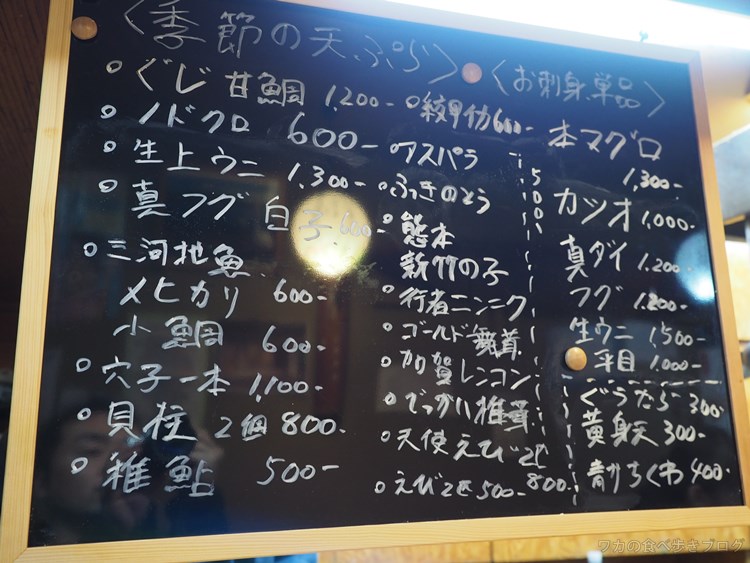 〈季節の天ぷら〉
。ぐじ 甘鯛 1,200-
。ノドクロ 600-
。生上ウニ 1,300-
。真フグ 白子 600-
。三河地魚
メヒカリ 600-
小鯛 600-
。穴子一本 1,100-
。貝柱 2個 800-
。稚鮎 500-
。紋甲イカ 600-
。アスパラ
。ふきのとう
。熊本
新竹の子
。行者ニンニク
。ゴールド舞茸
。加賀レンコン
。でっかい椎茸
500-
。天使えび2匹 800-
。えび2匹 500-
〈お刺身単品〉
本マグロ
1,300-
カツオ 1,000-
真ダイ 1,200-
フグ 1,200-
生ウニ 1,500-
平目 1,000-
ぐうたら 300-
黄身天 300-
青のりちくわ 400-
フカの食べ歩きブログ